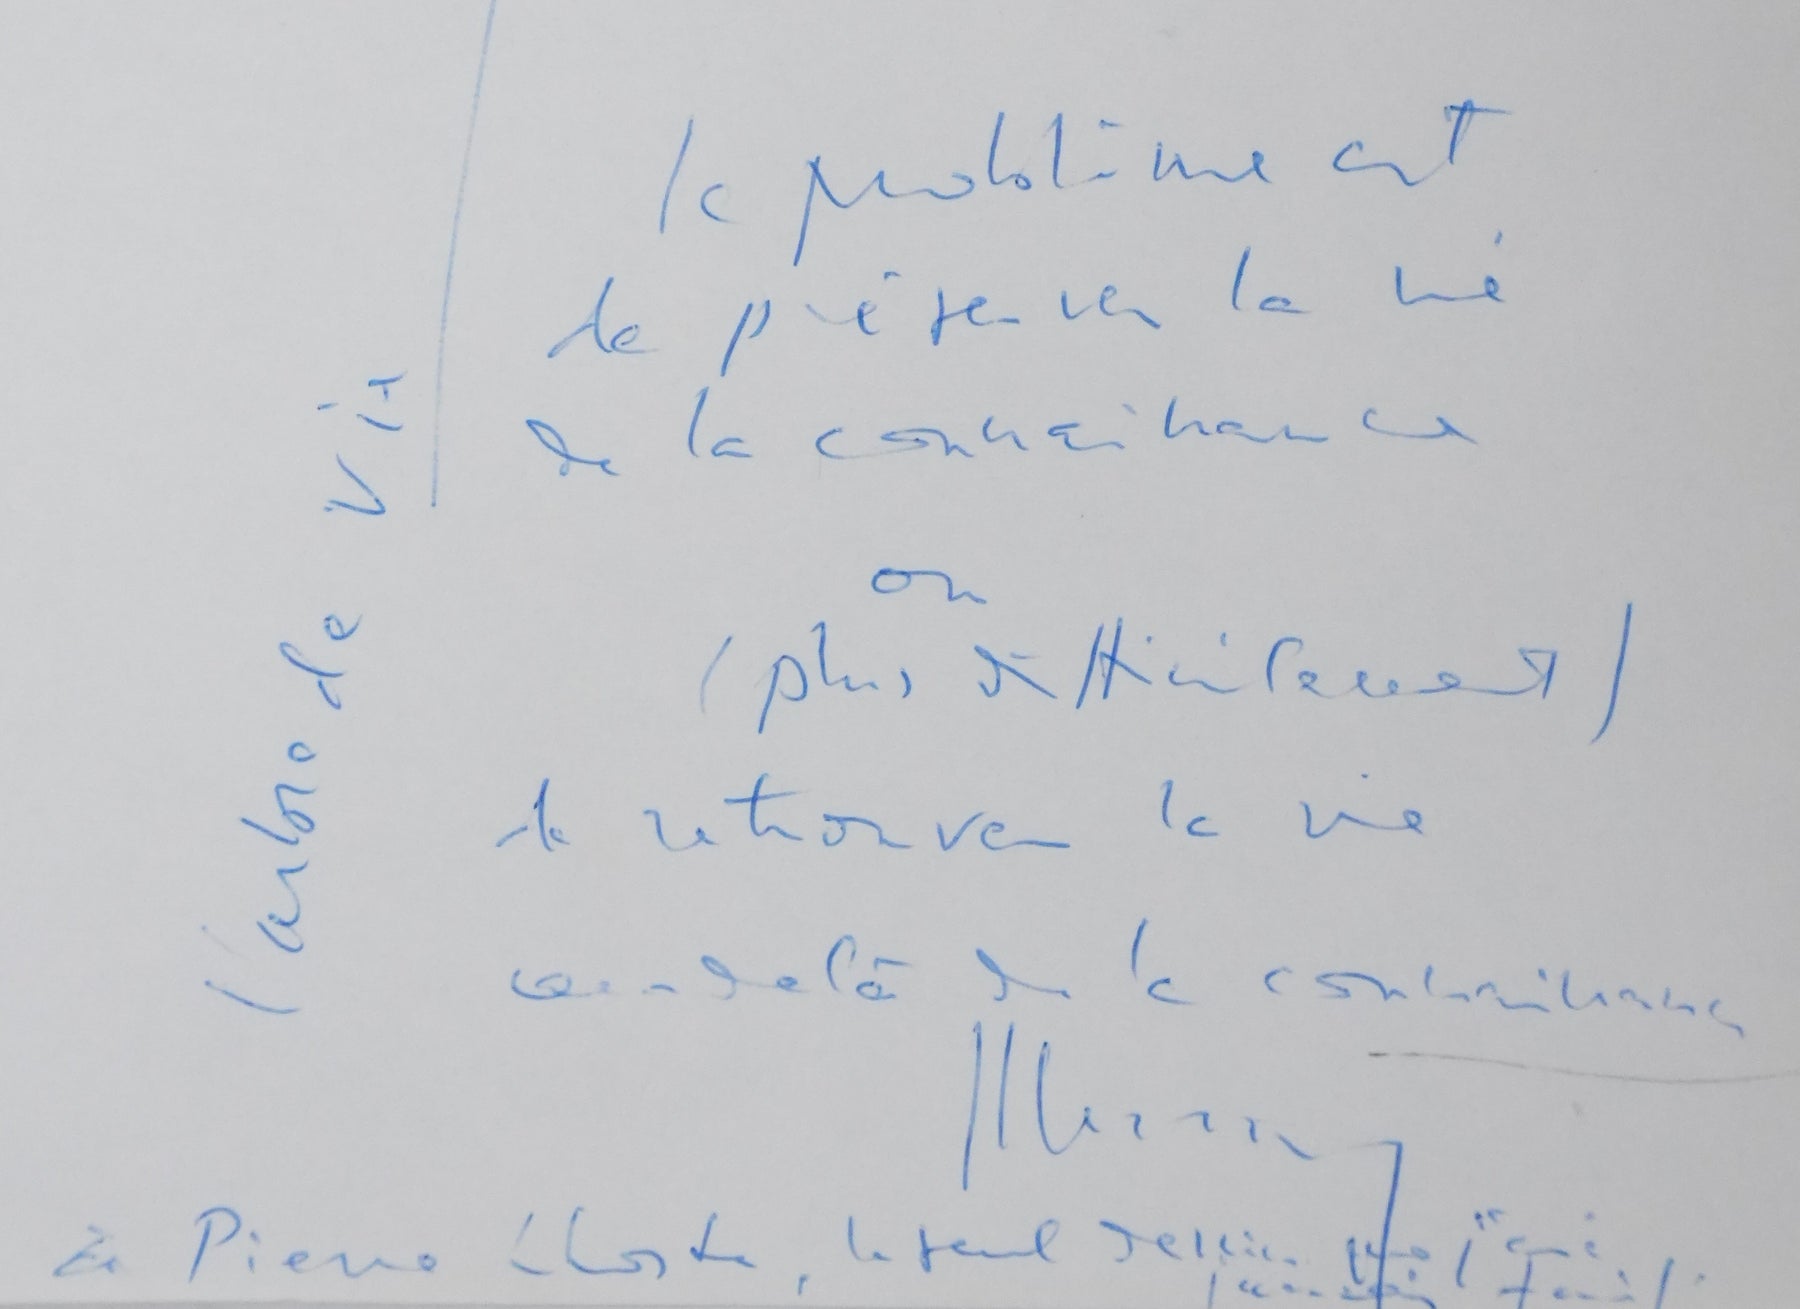 le problème est
de préserver la vie
de la connaissance
ou
(plus difficilement)
de retrouver la vie
au-delà de la connaissance
l'arbre de vie
à Pierre Lhoste, le seul dessin que j'aie
jamais fait